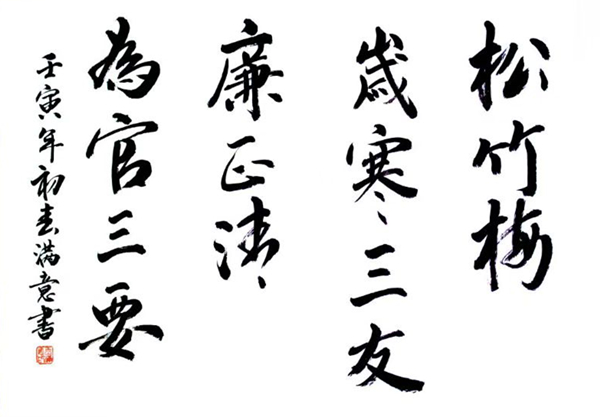 松竹梅
歲寒三友
廉正清
為官三要
壬寅年初春滿意書